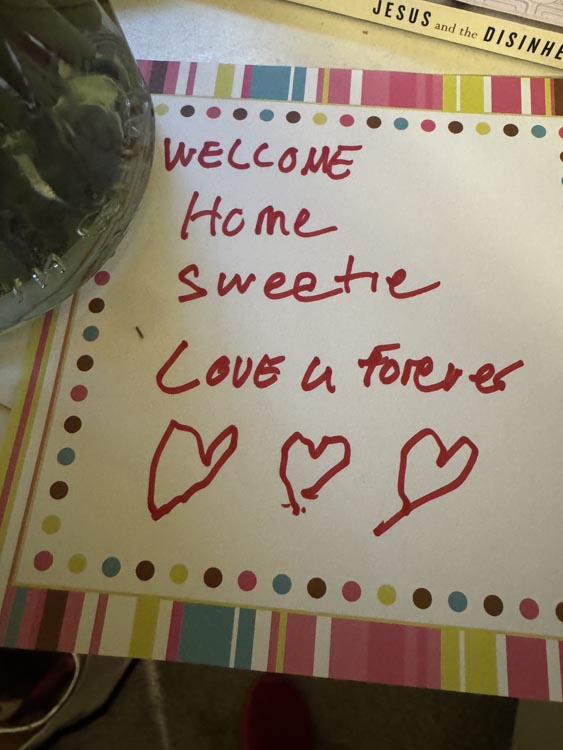 JESUS and the DISINHE
WELCOME
Home
sweetie
LOVE u forever